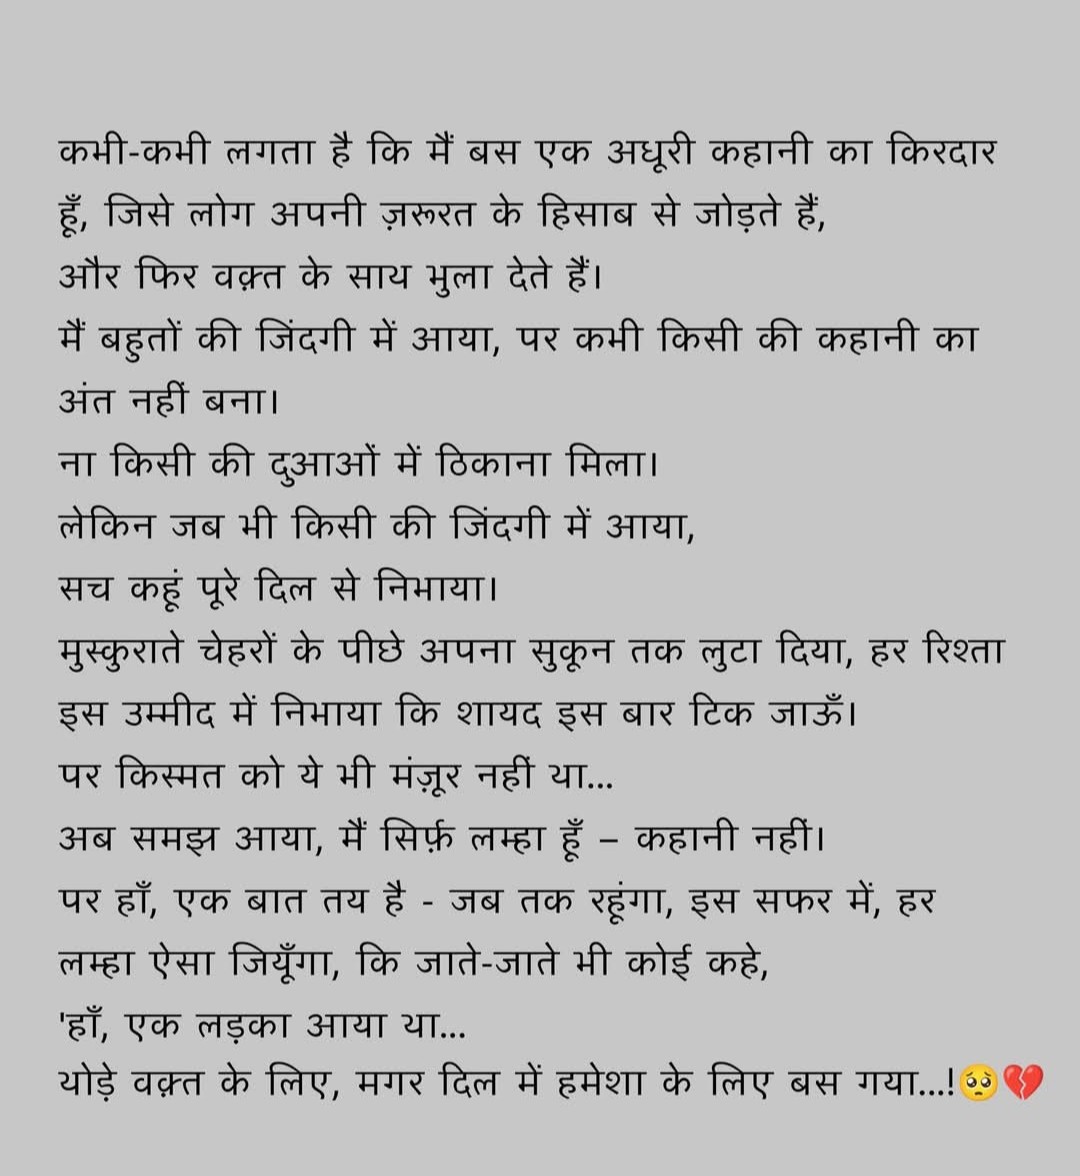 कभी-कभी लगता है कि मैं बस एक अधूरी कहानी का किरदार
हूँ, जिसे लोग अपनी ज़रूरत के हिसाब से जोड़ते हैं,
और फिर वक़्त के साथ भुला देते हैं।
मैं बहुतों की जिंदगी में आया, पर कभी किसी की कहानी का
अंत नहीं बना।
ना किसी की दुआओं में ठिकाना मिला।
लेकिन जब भी किसी की जिंदगी में आया,
सच कहूं पूरे दिल से निभाया।
मुस्कुराते चेहरों के पीछे अपना सुकून तक लुटा दिया, हर रिश्ता
इस उम्मीद में निभाया कि शायद इस बार टिक जाऊँ।
पर किस्मत को ये भी मंज़ूर नहीं था...
अब समझ आया, मैं सिर्फ़ लम्हा हूँ – कहानी नहीं।
पर हाँ, एक बात तय है - जब तक रहूंगा, इस सफर में, हर
लम्हा ऐसा जियूँगा, कि जाते-जाते भी कोई कहे,
'हाँ, एक लड़का आया था...
थोड़े वक़्त के लिए, मगर दिल में हमेशा के लिए बस गया...!🥺💔